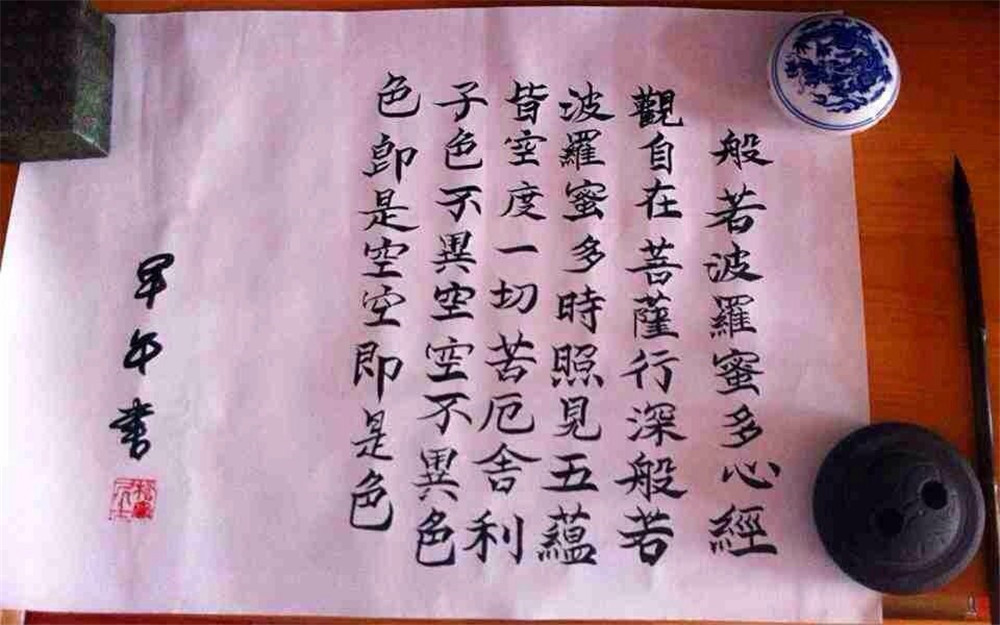 般若波羅蜜多心經
觀自在菩薩行深般若
波羅蜜多時照見五蘊
皆空度一切苦厄舍利
子色不異空空不異色
色即是空空即是色
早午書